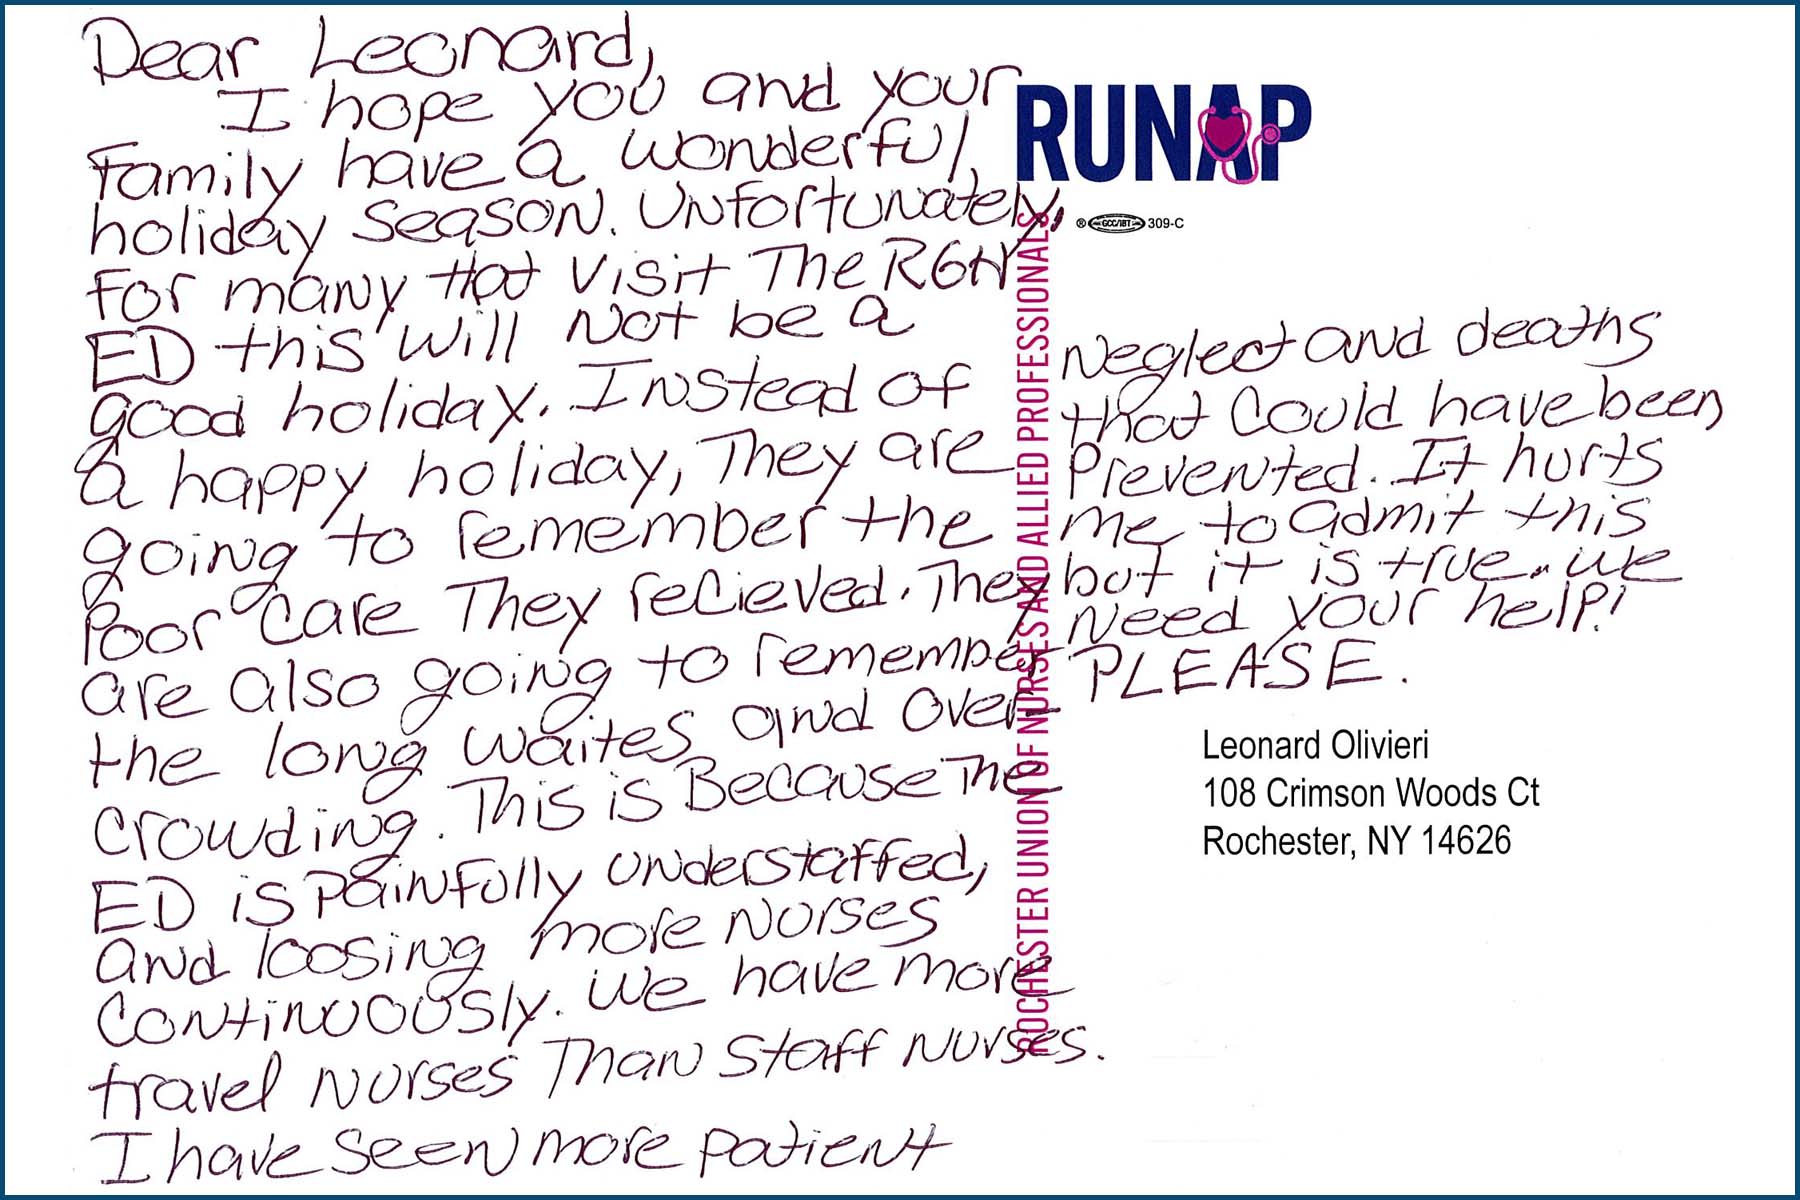 Dear Leonard,
I hope you and your
family have a wonderful
holiday season. Unfortunately,
for many that visit The RGH
ED this will not be a
good holiday. Instead of
a happy holiday, They are
going to remember the
poor care They recieved. They
are also going to remember
the long waites and over-
crowding. This is Because The
ED is painfully understaffed,
and loosing more nurses
continuously. We have more
travel nurses Than staff nurses.
I have seen more patient
neglect and deaths
that could have been
prevented. It hurts
me to admit this
but it is true. We
need your help!
PLEASE.
RUNAP
® GCC/IBT 309-C
ROCHESTER UNION OF NURSES AND ALLIED PROFESSIONALS
Leonard Olivieri
108 Crimson Woods Ct
Rochester, NY 14626